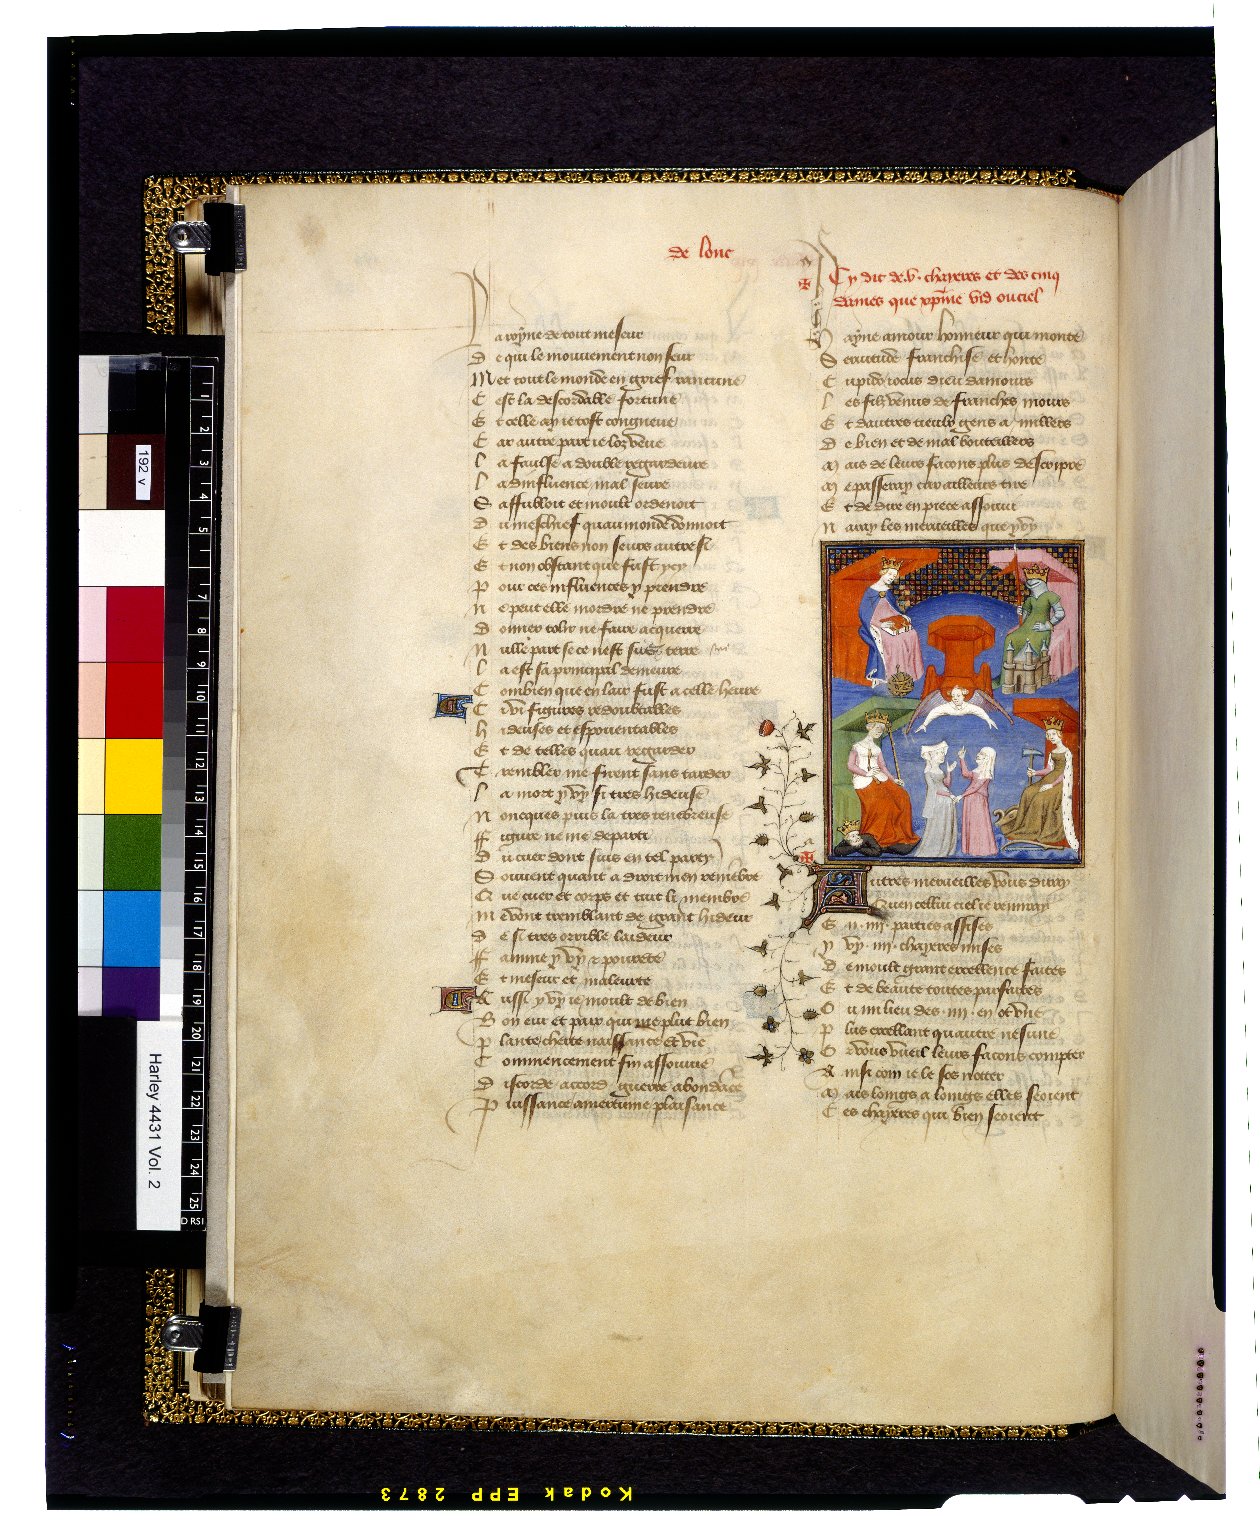 de lonc
P ar qÿne de tout meseur
D e qui le mouuement non seur
M et tout le monde en grief rancune
C est la descordable fortune
E t celle ay ie tost congneue
C ar autre part ie loz veue
L a faulse a double regardeure
L ad influence mal seure
S affubloit et moult ordenoit
D u meschief quau monde donnoit
E t des biens non seurs autresi
E t non obstant que fust ycy
P our ces influences y prendre
N e peut elle mordre ne prendre
D onner tolir ne faire acquerre
N ulle part se ce nest sus terre
L a est sa principal demeure
C ombien que en lair fust a celle heure
C i vi figures redoubtables
H ideuses et espouentables
E t de telles quau regarder
T rembler me firent sans tarder
L a mort y vy si tres hideuse
N oncques puis la tres tenebreuse
ff igure ne me departi
D u cuer dont suis en tel parti
S ouuent quant a droit men remembre
Q ue cuer et corps et tuit li membre
M e vont tremblant de grant hideur
D e si tres orrible laideur
ff amine y vy et pourete
E t meseur et maleurte
A ussi y vy ie moult de bien
B on eur et paix qui me plut bien
P lante cherte naissance et vie
C ommencement fin assouuie
D iscorde accord guerre abondance
P uissance amertume plaisance
Cy dit de .v. chayeres et des cinq
dames que xpine vid ou ciel
H ayne amour honneur qui monte
S eruitude franchise et honte
C upido iocus dieu damours
L es filz venus de franches mours
E t dautres tieulx gens a milliers
D e bien et de mal bouteilliers
M ais de leurs facons plus descripre
M e passeray car ailleurs tire
E t de dire en piece assouui
N auray les merueilles que y vy
A utres merueilles vous diray
Quen cellui ciel ie remiray
E n .iiii. parties assises
Y vy .iiii. chayeres mises
D e moult grant excellence faites
E t de beaute toutes parfaites
O u milieu des .iiii. en ot vne
P lus excellant quautre nesune
O r vous vueil leurs facons compter
A insi com ie le sos notter
M ais loings a loings elles seoient
C es chayeres qui bien seoient
192 v
Harley 4431 Vol. 2
1
2
3
4
5
7
8
9
10
11
12
13
14
15
16
17
18
19
20
21
22
23
24
25
Kodak EPP 2873